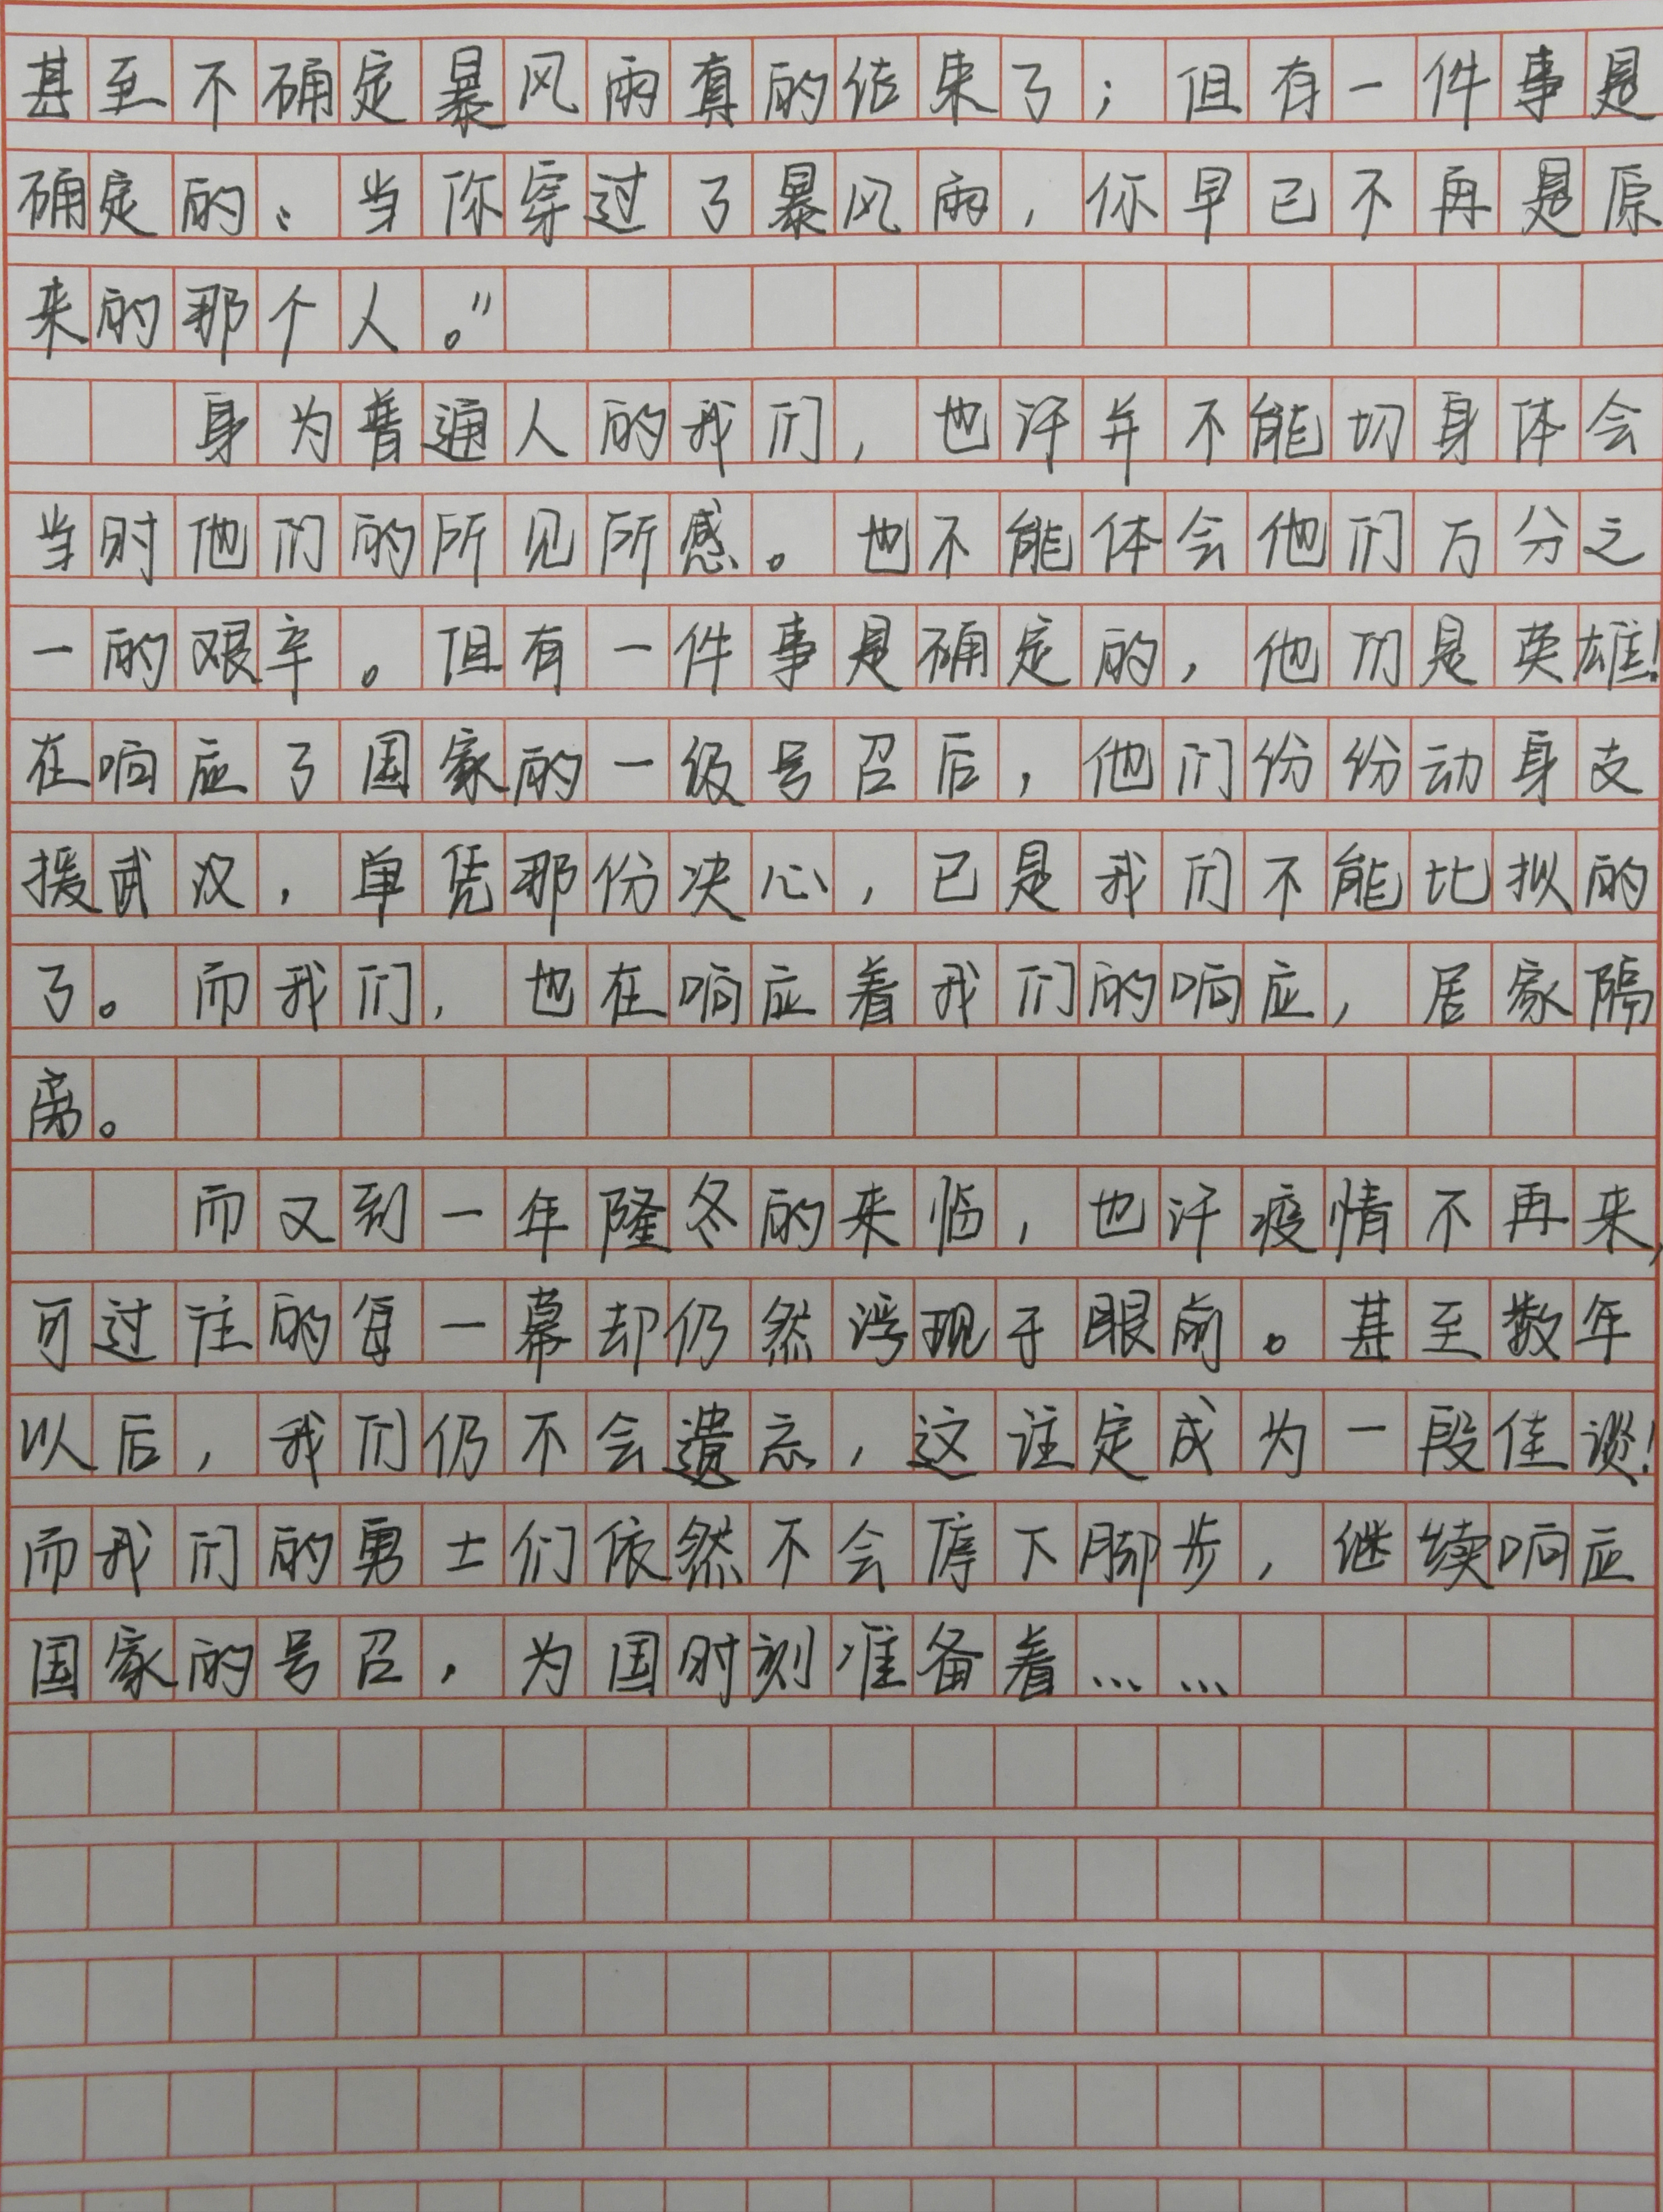 甚至不确定暴风雨真的结束了；但有一件事是
确定的：当你穿过了暴风雨，你早已不再是原
来的那个人。”
身为普通人的我们，也许并不能切身体会
当时他们的所见所感。也不能体会他们万分之
一的艰辛。但有一件事是确定的，他们是英雄！
在响应了国家的一级号召后，他们份纷动身支
援武汉，单凭那份决心，已是我们不能比拟的
了。而我们，也在响应着我们的响应，居家隔
离。
而又到一年隆冬的来临，也许疫情不再来，
可过往的每一幕却仍然浮现于眼前。甚至数年
以后，我们仍不会遗忘，这注定成为一段佳谈！
而我们的勇士们依然不会停下脚步，继续响应
国家的号召，为国时刻准备着……